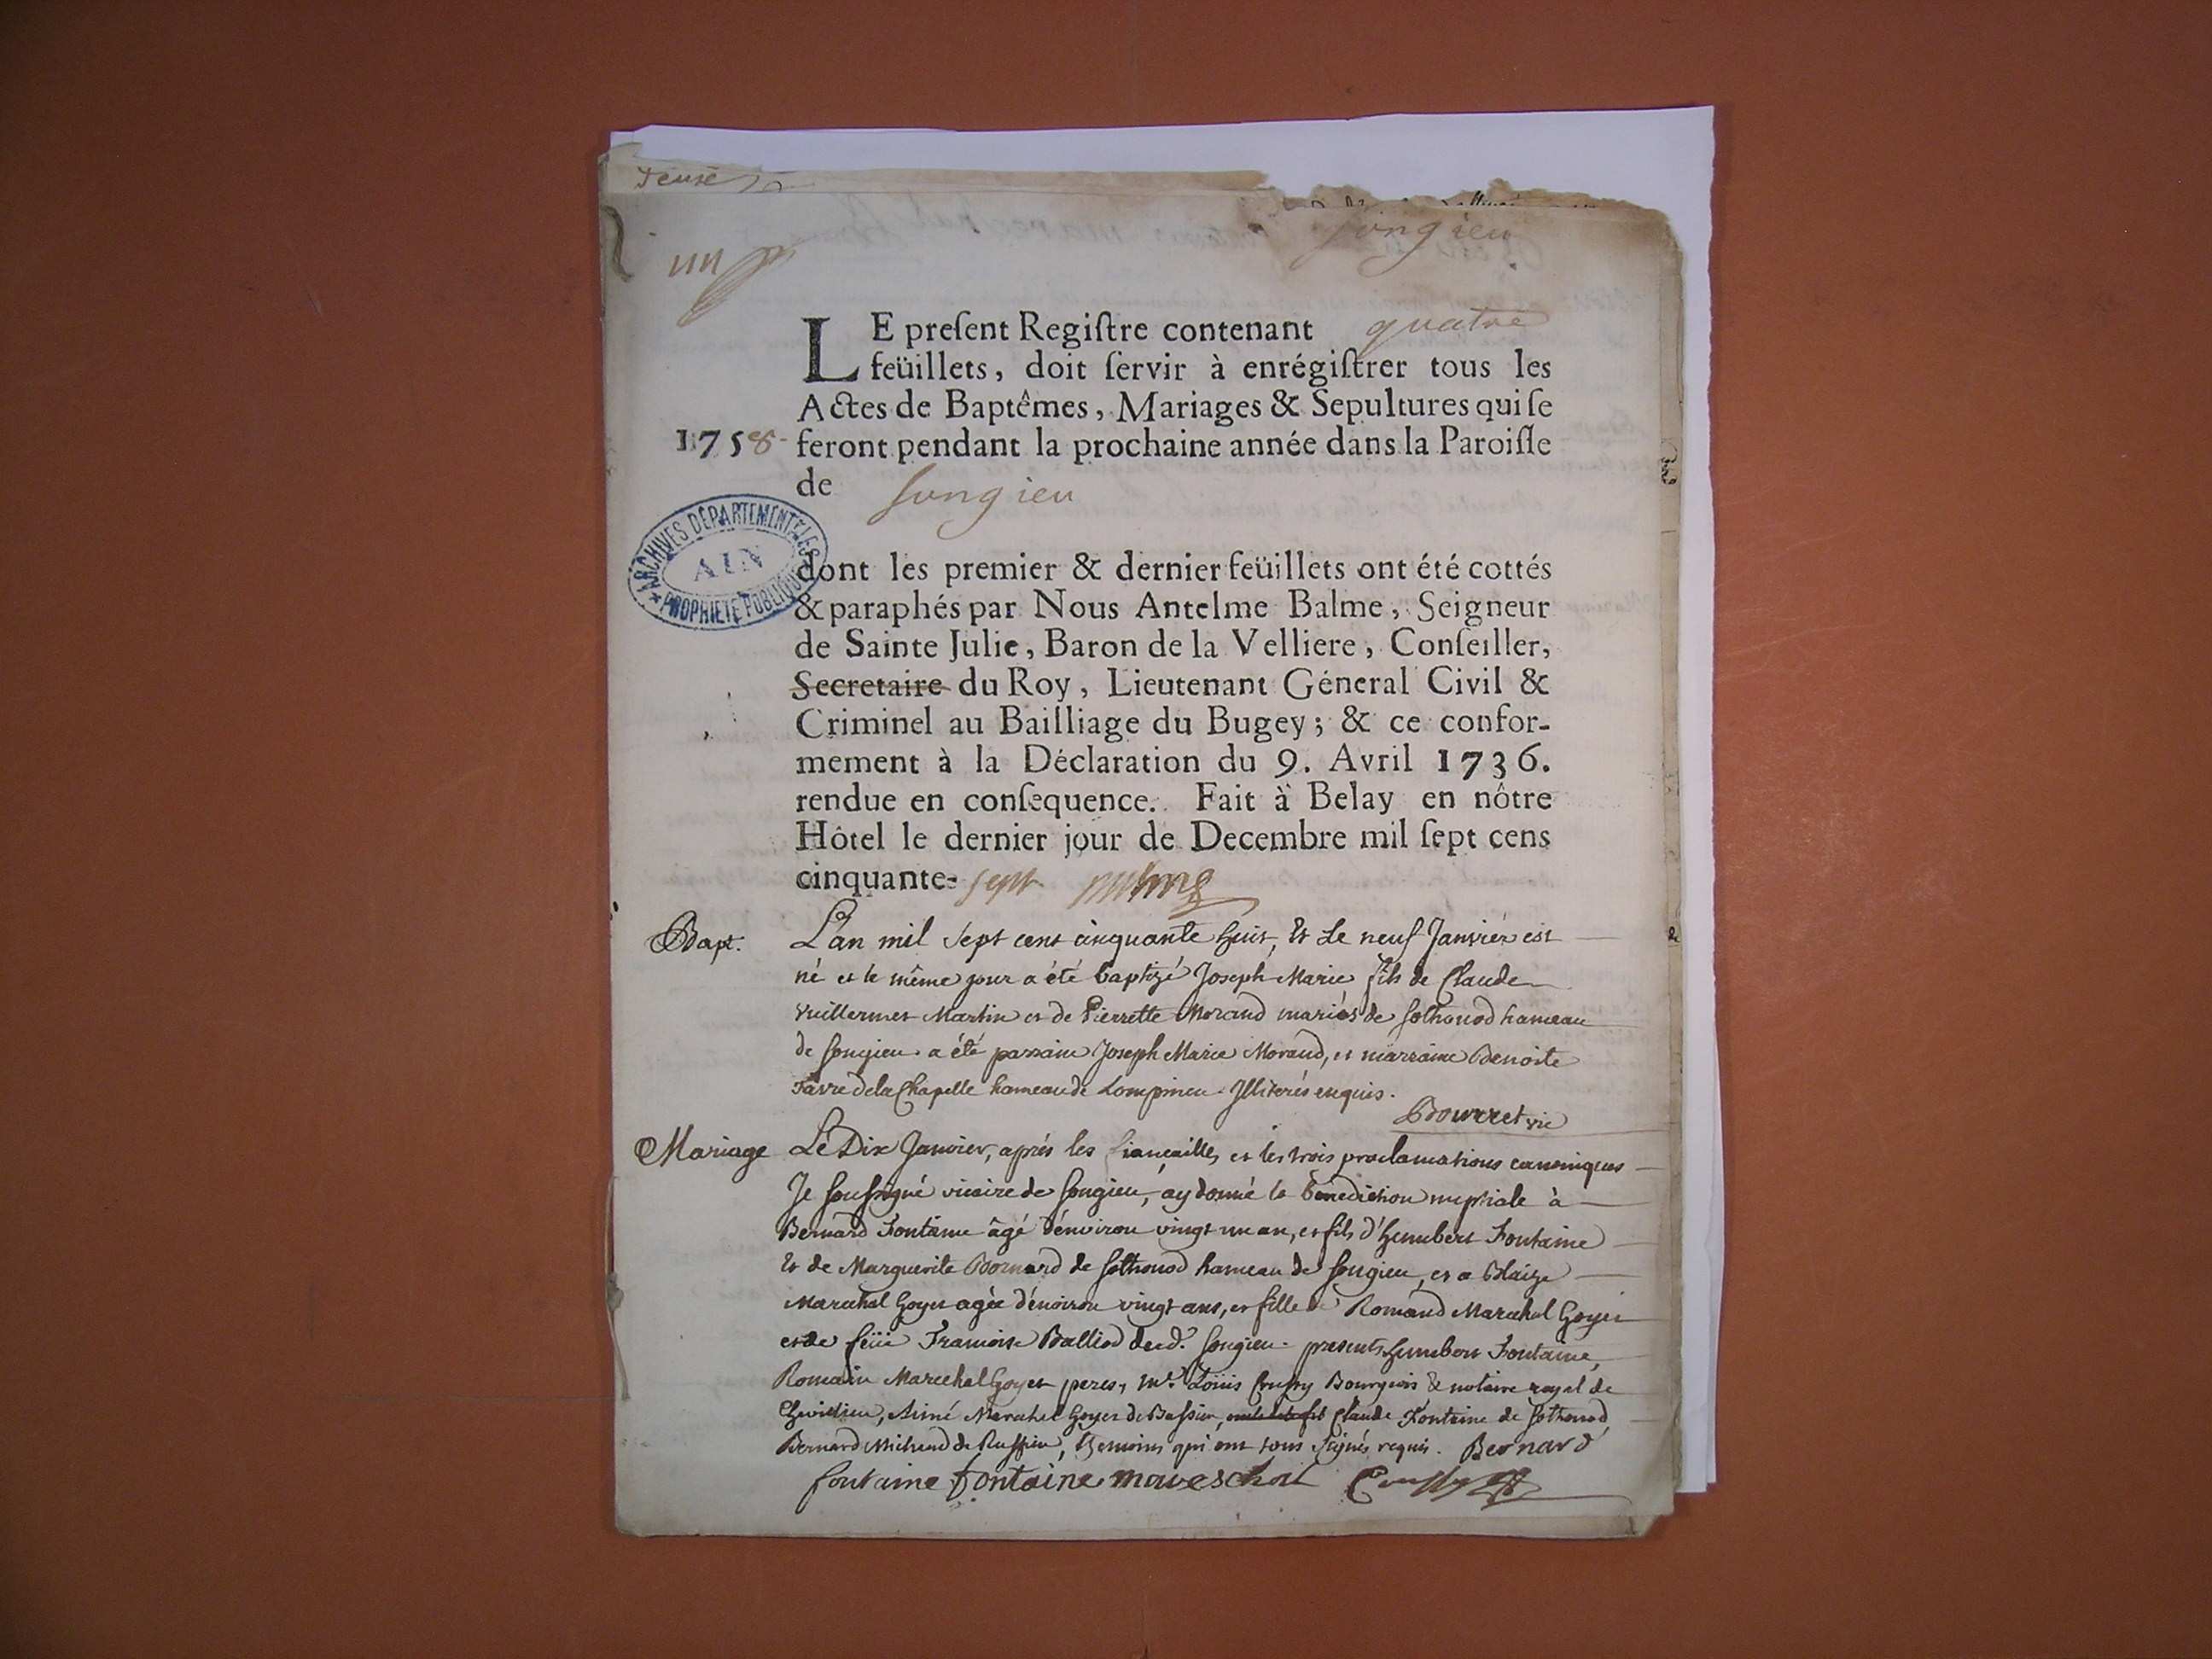 songieu
un
LE preſent Regiſtre contenant quatre
feüillets, doit ſervir à enrégiſtrer tous les
Actes de Baptêmes, Mariages & Sepultures qui ſe
1758 feront pendant la prochaine année dans la Paroiſſe
de songieu
ARCHIVES DÉPARTEMENTALES
AIN
PROPRIÉTÉ PUBLIQUE
dont les premier & dernier feüillets ont été cottés
& paraphés par Nous Antelme Balme, Seigneur
de Sainte Julie, Baron de la Velliere, Conſeiller,
Secretaire du Roy, Lieutenant Géneral Civil &
Criminel au Bailliage du Bugey; & ce confor-
mement à la Déclaration du 9. Avril 1736.
rendue en conſequence. Fait à Belay en nôtre
Hôtel le dernier jour de Decembre mil ſept cens
cinquante-sept
Bapt. L'an mil sept cent cinquante huit, et le neuf Janvier est
né et le même jour a été baptizé Joseph Marie fils de Claude
Vuillermet Martin et de Pierrette Morand mariés de sothonod hameau
de songieu a été parrain Joseph Marie Morand, et marraine Benoite
Favre de la Chapelle hameau de Lompnieu Illiterés enquis.
Bourret vic
Mariage Le Dix Janvier, après les fiançailles et les trois proclamations canoniques
Je soussigné vicaire de songieu, ay donné la bénediction nuptiale à
Bernard Fontaine âgé d'environ vingt un an, et fils d'humbert Fontaine
Et de Marguerite Bornard de sothonod hameau de songieu, et a Blaize
Marechal Goyet agée d'environ vingt ans, et fille de Romand Marechal Goyet
et de feüe Francoise Balliod dud. songieu. presents humbert Fontaine,
Romain Marechal Goyet peres, Mr. Loüis Crussy Bourgeois & notaire royal de
Aimé Marechal Goyet de Bassieu, Claude Fontaine de sothonod
Bernard Michaud de Ruffieu, temoins qui ont tous signés requis. Bernard
fontaine fontaine mareschal Crussy